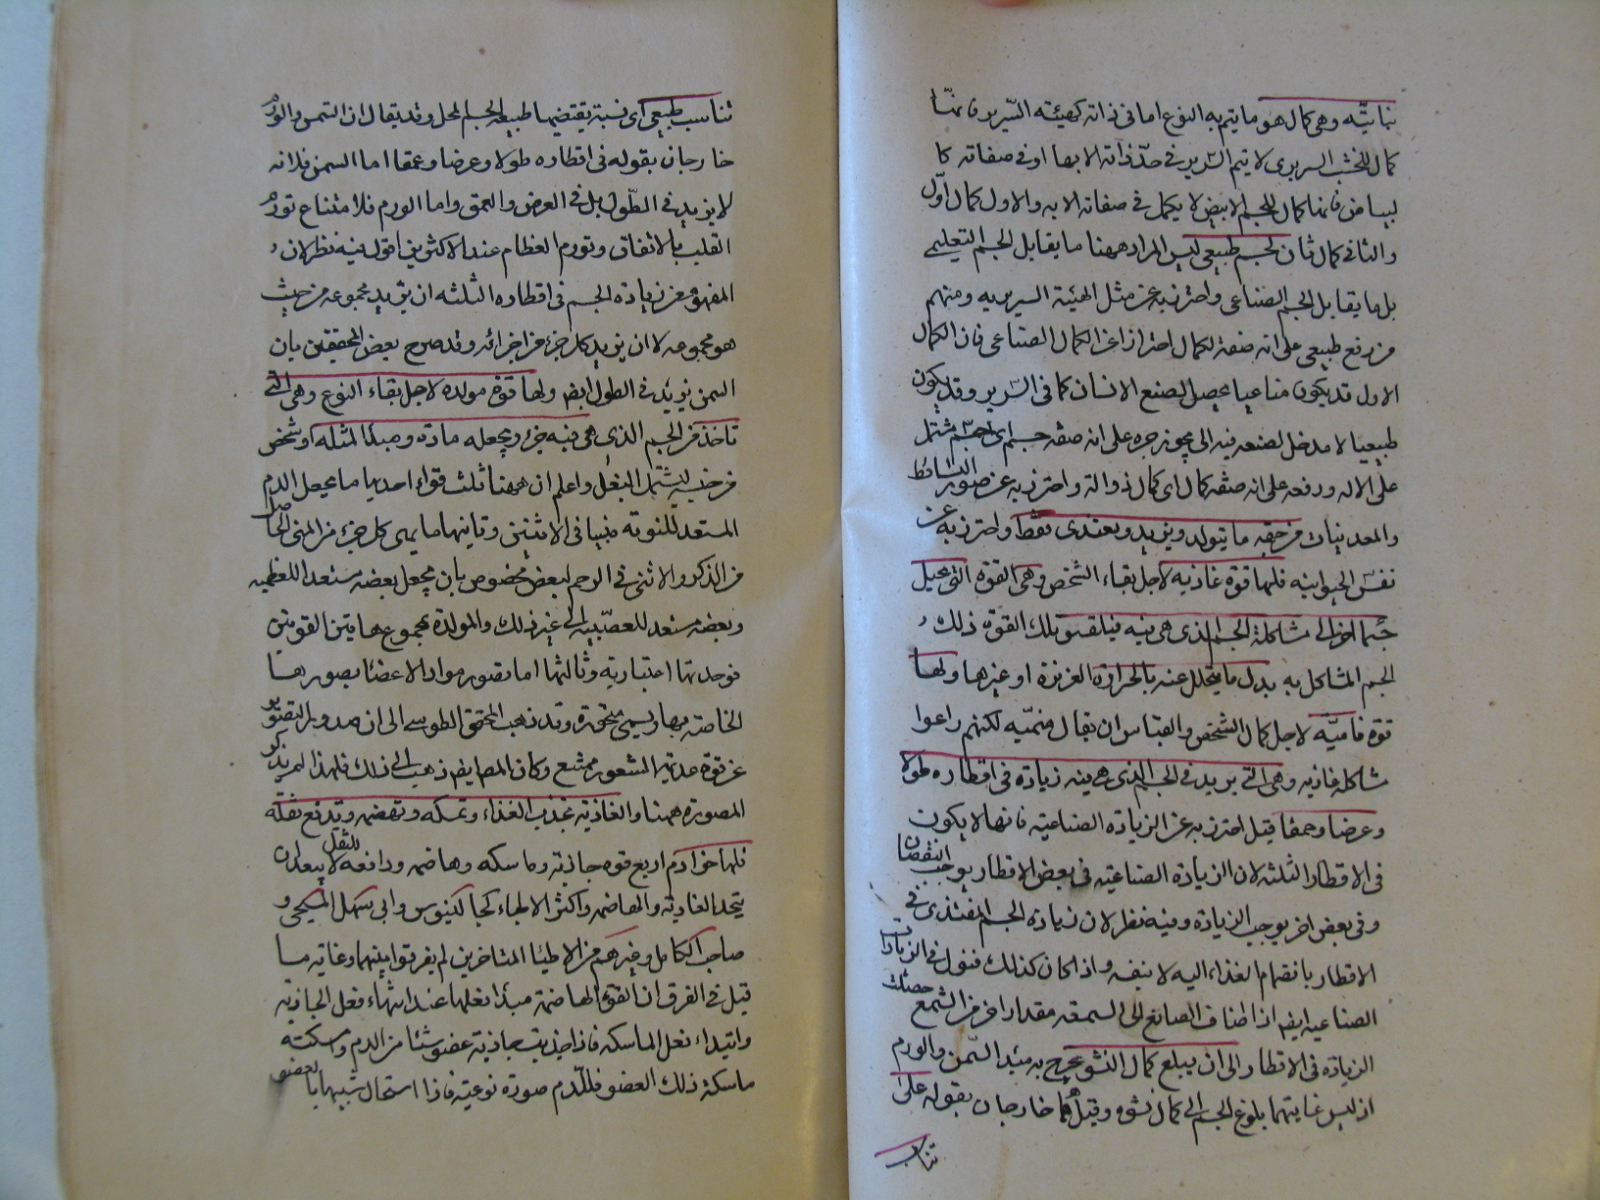 نباتيّه وهى كمال هو ما يتم به النوع اما فى ذاته كهيئته السّرير فانّها
كمال للخشب السريرى لا يتم السّرير فى حدّ ذاته الا بها او فى صفاته كا
لبياض فانها كمال للجسم الابيض لا يكمل فى صفاته الا به والاول كمال اوّل
والثانى كمال ثان لجسم طبيعى ليس المراد ههنا ما يقابل الجسم التعليمى
بل ما يقابل الجسم الصناعى واحترز به عن مثل الهيئة السريريه ومنهم
من رفع طبيعى على انه صفة الكمال احترازا عن الكمال الصناعى فان الكمال
الاول قد يكون صناعيا يحصل لصنع الانسان كما فى السّرير وقد يكون
طبيعيا لا مدخل لصنعه فيه الى يجوز جره على انه صفه جسم اى جسم مشتمل
على الاله ورفعه على انه صفه كمال اى كمال ذو الة واحترز به عن صور البسائط
والمعدنيات من جهه ما يتولد ويزيد ويغتذى فقط واحترز به عن
نفس الحيوانيه فلها قوة غاذيه لاجل بقاء الشخص وهى القوة التى تحيل
جسما اخر الى مشاكلة الجسم الذى هى فيه فيلصق تلك القوة ذلك
الجسم المشاكل به بدل ما يتحلل عنه بالحرارة الغريزة او غيرها ولها
قوة ناميّه لاجل كمال الشخص والقياس ان يقال منميّه لكنهم راعوا
مشاكلة غاذيه وهى التى يزيد فى الجسم الذى هى فيه زيادة فى اقطاره طولا
وعرضا وعمقا قيل احترز به عن الزيادة الصناعيه فانها لا يكون
فى الاقطار الثلثه لان الزيادة الصناعيه فى بعض الاقطار يوجب النقصان
وفى بعض اخر يوجب الزيادة وفيه نظر لان زيادة الجسم المغتذى فى
الاقطار بانضمام الغذاء اليه لا بنفسه واذا كان كذلك فنقول فى الزيادات
الصناعيه ايضا اذا اضاف الصانع الى الشمعه مقدارا اخر من الشمع حصلت
الزيادة فى الاقطار الى ان يبلغ كمال النشو يخرج به مبدا السّمن والورم
اذ ليس غايتهما بلوغ الجسم الى كمال نشوه وقيل هما خارجان بقوله على
تناسب
تناسب طبيعى اى نسبة يقتضيها طبيعة الجسم المحل وقد يقال ان السّمن والورم
خارجان بقوله فى اقطاره طولا وعرضا وعمقا اما السمن فلانه
لا يزيد فى الطّول بل فى العرض والعمق واما الورم فلامتناع تورم
القلب بالاتفاق وتورم العظام عند الاكثرين اقول فيه نظر لان
المفهوم من زيادة الجسم فى اقطاره الثلثه ان يزيد مجموعه من حيث
هو مجموعه لا ان يزيد كل جزء من اجزائه وقد صرح بعض المحققين بان
السمن يزيد فى الطول ايضا ولها قوة مولده لاجل بقاء النوع وهى التى
تاخذ من الجسم الذى هى فيه جزء ويجعله مادة ومبدا لمثله او شخص
من جنسه ليشتمل البغل واعلم ان ههنا ثلث قواء احديها ما يحصل الدم
المستعد للمنويه منيا فى الانثيين وثانيها ما يهيى كل جزء من المنى الحاصل
من الذكر والانثى فى الرحم لبعض مخصوص بان يجعل بعضه مستعدا للعظميه
وبعضه مستعد للعصبيه الى غير ذلك والمولدة مجموع هاتين القوتين
فوحدتها اعتباريه وثالثها اما تصور مواد الاعضا بصورها
الخاصة بها ويسمى مصورة وقد ذهب المحقق الطوسى الى ان صدور التصوير
عن قوة عديمة الشعور ممتنع وكان المص ايضا ذهب الى ذلك فلهذا لم يذكر
المصورة ههنا والغاذيه تجذب الغذاء وتمسكه وتهضمه وتدفع ثقله
فلها خوادم اربع قوة جاذبة وماسكه وهاضمه ودافعه للثقل لا يبعد ان
يتحد الغاذية والهاضمه واكثر الاطباء كجالينوس وابى سهل المسيحى و
صاحب الكامل وغيرهم من الاطبا المتاخرين لم يفرقوا بينهما وغاية ما
قيل فى الفرق ان القوة الهاضمة مبدا فعلها عند انتهاء فعل الجاذبة
وابتداء فعل الماسكه فاذا جذبت جاذبة عضو شيئا من الدم وامسكته
ماسكة ذلك العضو فللدّم صورة نوعيه فاذا استحال شبيها بالعضو